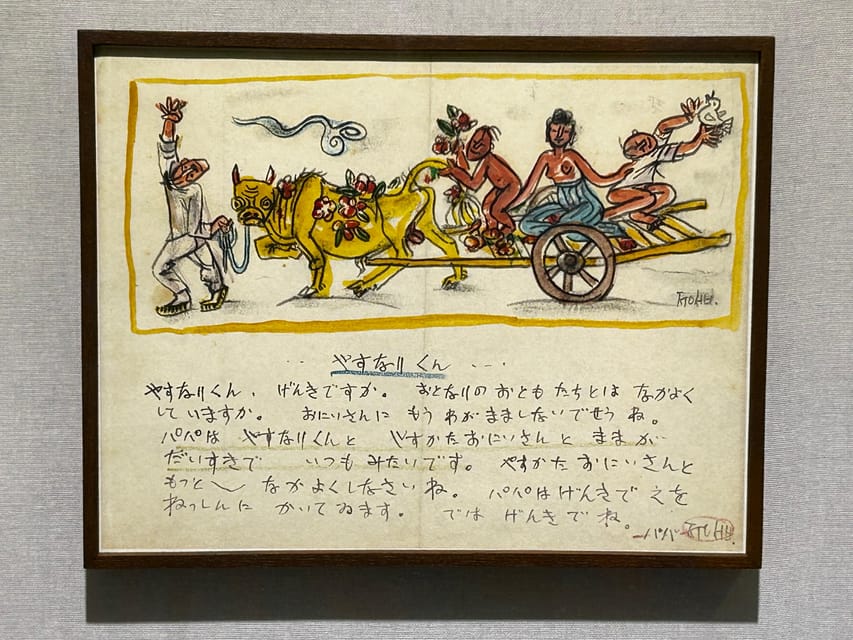 KTUHU.
やすなりくん
やすなりくん、げんきですか。 おとなりの おともたちとは なかよく
していますか。 おにいさんに もう わがまましないでせう ね。
パパは やすなりくんと やすかたおにいさん と ままが
だいすきで いつも みたいです。 やすかた おにいさんと
もっと なかよくしなさいね。 パパはげんきで えを
ねっしんに かいてゐます。 では げんきでね。
パパ